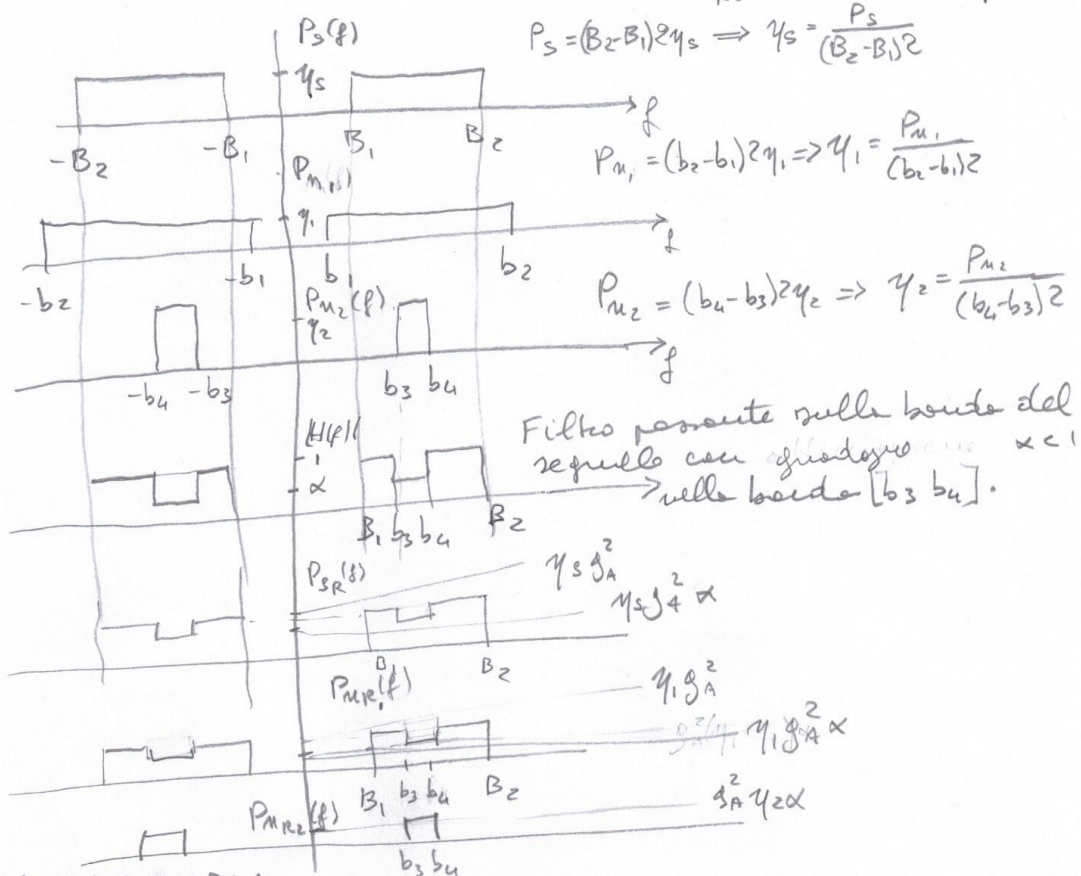 P_S(f)
P_S = (B_2-B_1)2η_S ⟹ η_S = P_S / (B_2-B_1)2
η_S
f
-B_2 -B_1 B_1 B_2
P_{n_1} = (b_2-b_1)2η_1 ⟹ η_1 = P_{n_1} / (b_2-b_1)2
P_{n_1}(f)
η_1
f
-b_2 -b_1 b_1 b_2
P_{n_2}(f)
P_{n_2} = (b_4-b_3)2η_2 ⟹ η_2 = P_{n_2} / (b_4-b_3)2
η_2
f
-b_4 -b_3 b_3 b_4
|H(f)|
1
α
Filtro passante sulla banda del
segnale con guadagno α<1
nella banda [b_3 b_4].
B_1 b_3 b_4 B_2
P_{SR}(f)
η_S g_A^2
η_S g_A^2 α
B_1 B_2
P_{nR_1}(f)
η_1 g_A^2
η_1 g_A^2 α
B_1 b_3 b_4 B_2
P_{nR_2}(f)
g_A^2 η_2 α
b_3 b_4